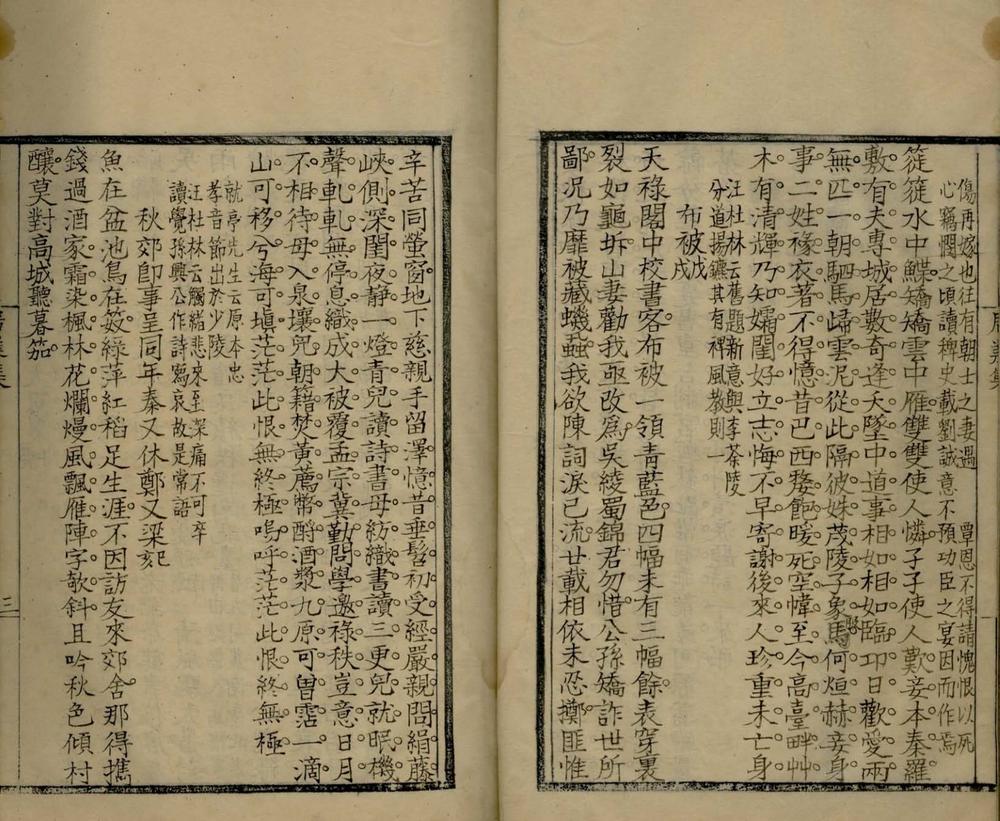 傷再嫁也往有朝士之妻遇 覃恩不得請愧恨以死
心竊憫之頃讀稗史載劉誠意不預功臣之宴因而作焉
簁簁水中鰈矯矯雲中雁雙雙使人憐孑孑使人歎妾本秦羅
敷有夫專城居數奇逢夭墜中道事相如相如臨邛日歡愛兩
無匹一朝駟馬歸雲泥從此隔彼姝茂陵子象馬何烜赫妾身
事二姓褖衣著不得憶昔巴西嫠飽暖死空幃至今高臺畔艸
木有清輝乃知孀閨好立志悔不早寄謝後來人珍重未亡身
汪杜林云舊題新意與李茶陵
分道揚鑣其有裨風教則一
布被戊戌
天祿閣中校書客布被一領青藍色四幅未有三幅餘表穿裏
裂如龜坼山妻勸我亟改為吳綾蜀錦君勿惜公孫矯詐世所
鄙況乃靡被藏蟣蝨我欲陳詞淚已流廿載相依未忍擲匪惟
辛苦同螢窗地下慈親手留澤憶昔垂髫初受經嚴親閤絹藤
峽側深閨夜靜一燈青兒讀詩書母紡織書讀三更兒就眠機
聲軋軋無停息織成大被覆孟宗冀勤問學邀祿秩豈意日月
不相待母入泉壤兒朝籍焚黃薦幣酹酒漿九原可曾霑一滴
山可移兮海可塡茫茫此恨無終極嗚呼茫茫此恨終無極
就亭先生云原本忠
孝音節出於少陵
汪杜林云觸緒悲來至深痛不可卒
讀覺孫興公作詩寫哀故是常語
秋郊卽事呈同年秦又休鄭又梁
魚在盆池鳥在笯綠萍紅稻足生涯不因訪友來郊舍那得攜
錢過酒家霜染楓林花爛熳風飄雁陣字欹斜且吟秋色傾村
釀莫對高城聽暮笳
三